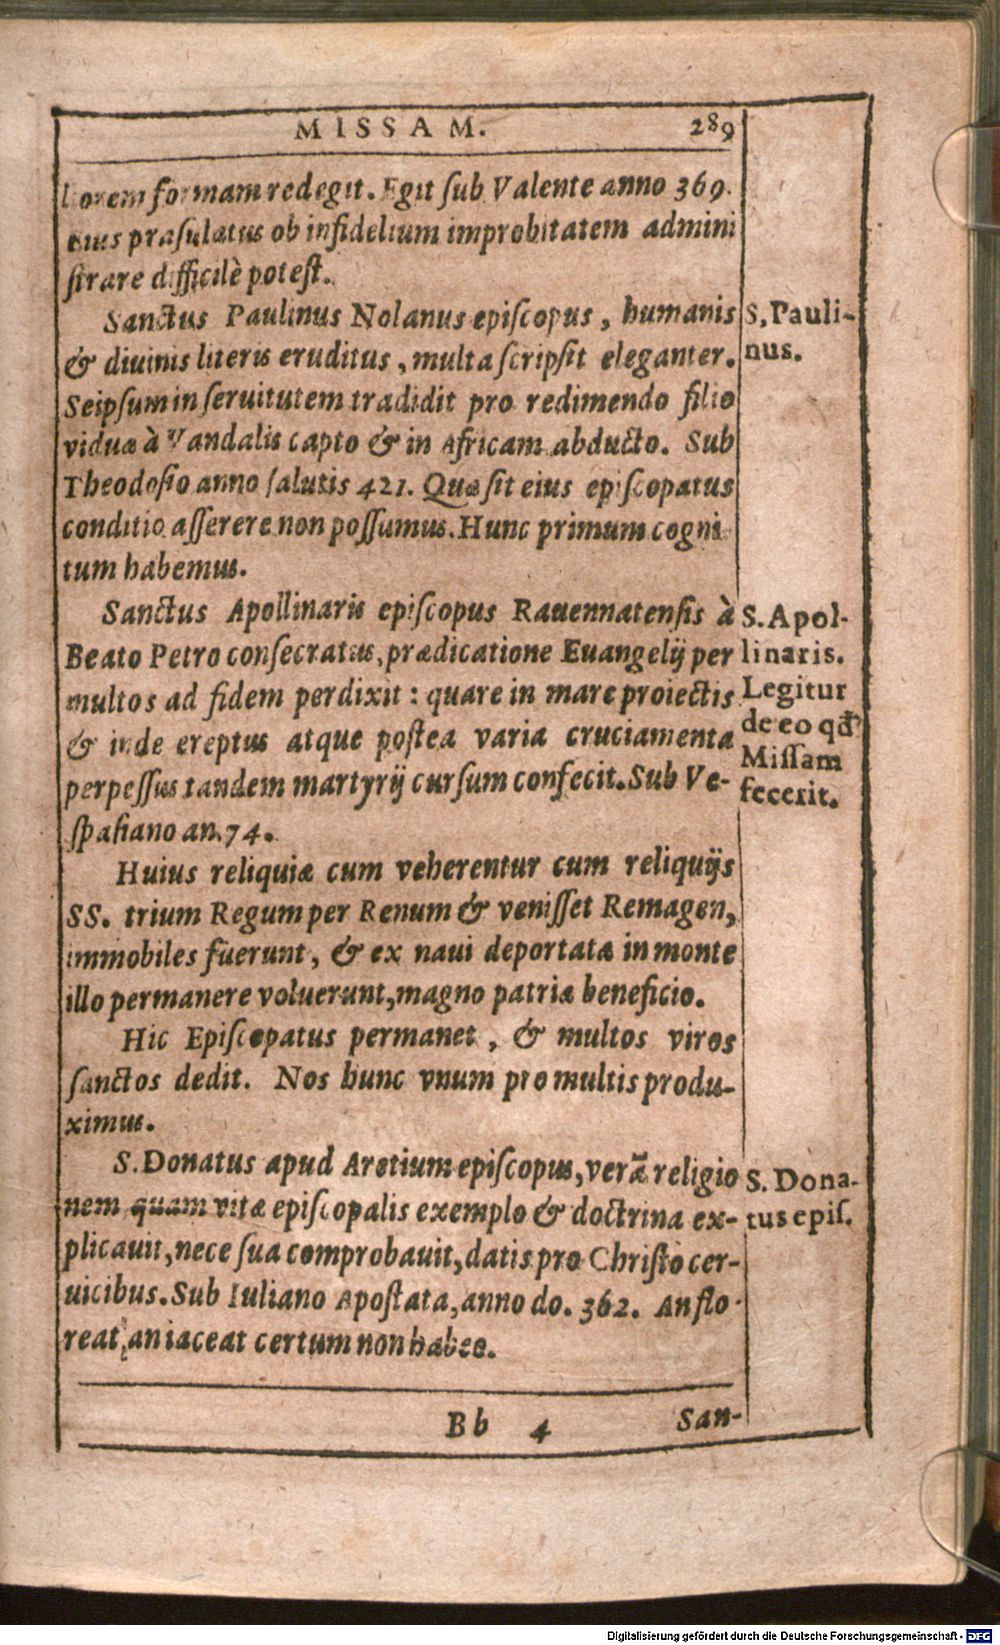 MISSAM. 289
formam redegit. Egit ſub Valente anno 369.
eius præſulatus ob infidelium improbitatem admini
ſtrare difficilè poteſt.
Sanctus Paulinus Nolanus epiſcopus, humanis
& diuinis literis eruditus, multa ſcripſit eleganter.
Seipſum in ſeruitutem tradidit pro redimendo filio
viduæ à Vandalis capto & in Africam abducto. Sub
Theodoſio anno ſalutis 421. Quæ ſit eius epiſcopatus
conditio aſſerere non poſſumus. Hunc primum cogni
tum habemus.
S. Pauli-
nus.
Sanctus Apollinaris epiſcopus Rauennatenſis à
Beato Petro conſecratus, prædicatione Euangelij per
multos ad fidem perdixit: quare in mare proiectis
& inde ereptus atque poſtea varia cruciamenta
perpeſſus tandem martyrij curſum confecit. Sub Ve-
ſpaſiano an. 74.
S. Apol-
linaris.
Legitur
de eo qđ
Miſſam
fecerit.
Huius reliquiæ cum veherentur cum reliquijs
SS. trium Regum per Renum & veniſſet Remagen,
immobiles fuerunt, & ex naui deportatæ in monte
illo permanere voluerunt, magno patriæ beneficio.
Hic Epiſcopatus permanet, & multos viros
ſanctos dedit. Nos hunc vnum pro multis produ-
ximus.
S. Donatus apud Aretium epiſcopus, verā religio
nem quam vitæ epiſcopalis exemplo & doctrina ex-
plicauit, nece ſua comprobauit, datis pro Chriſto cer-
uicibus. Sub Iuliano Apoſtata, anno do. 362. An flo-
reat, an iaceat certum non habeo.
S. Dona-
tus epiſ.
Bb 4 San-
Digitalisierung gefördert durch die Deutsche Forschungsgemeinschaft - DFG